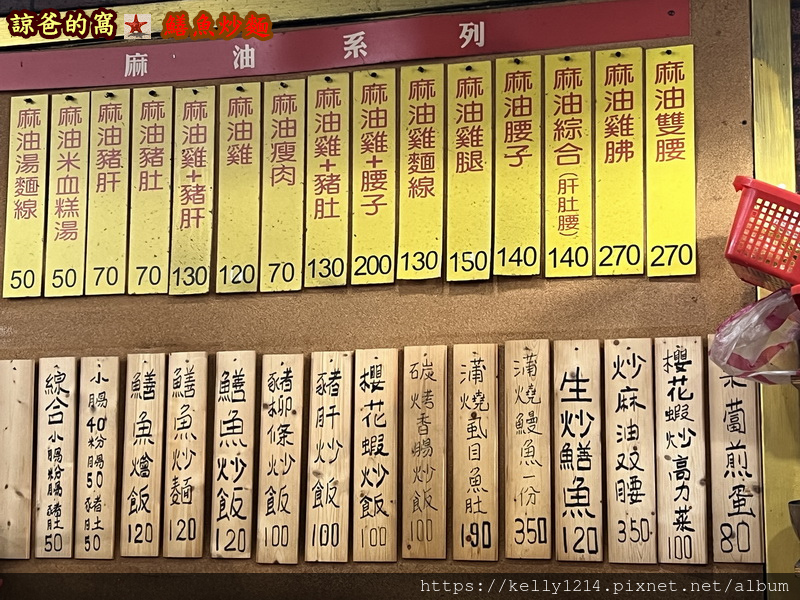 諒爸的窩 鱔魚炒麵
麻油系列
麻油湯麵線 50
麻油米血糕湯 50
麻油豬肝 70
麻油豬肚 70
麻油雞+豬肝 130
麻油雞 120
麻油瘦肉 70
麻油雞+豬肚 130
麻油雞+腰子 200
麻油雞麵線 130
麻油雞腿 150
麻油腰子 140
麻油綜合(肝肚腰) 140
麻油雞胇 270
麻油雙腰 270
綜合 小腸粉腸豬肚 50
小腸40粉腸50豬肚50
鱔魚燴飯 120
鱔魚炒麵 120
鱔魚炒飯 120
豬柳條炒飯 100
豬肝炒飯 100
櫻花蝦炒飯 100
碳烤香腸炒飯 100
蒲燒虱目魚肚 190
蒲燒鰻魚一份 350
生炒鱔魚 120
炒麻油双腰 350
櫻花蝦炒高力菜 100
茼煎蛋 80
https://kelly1214.pixnet.net/album